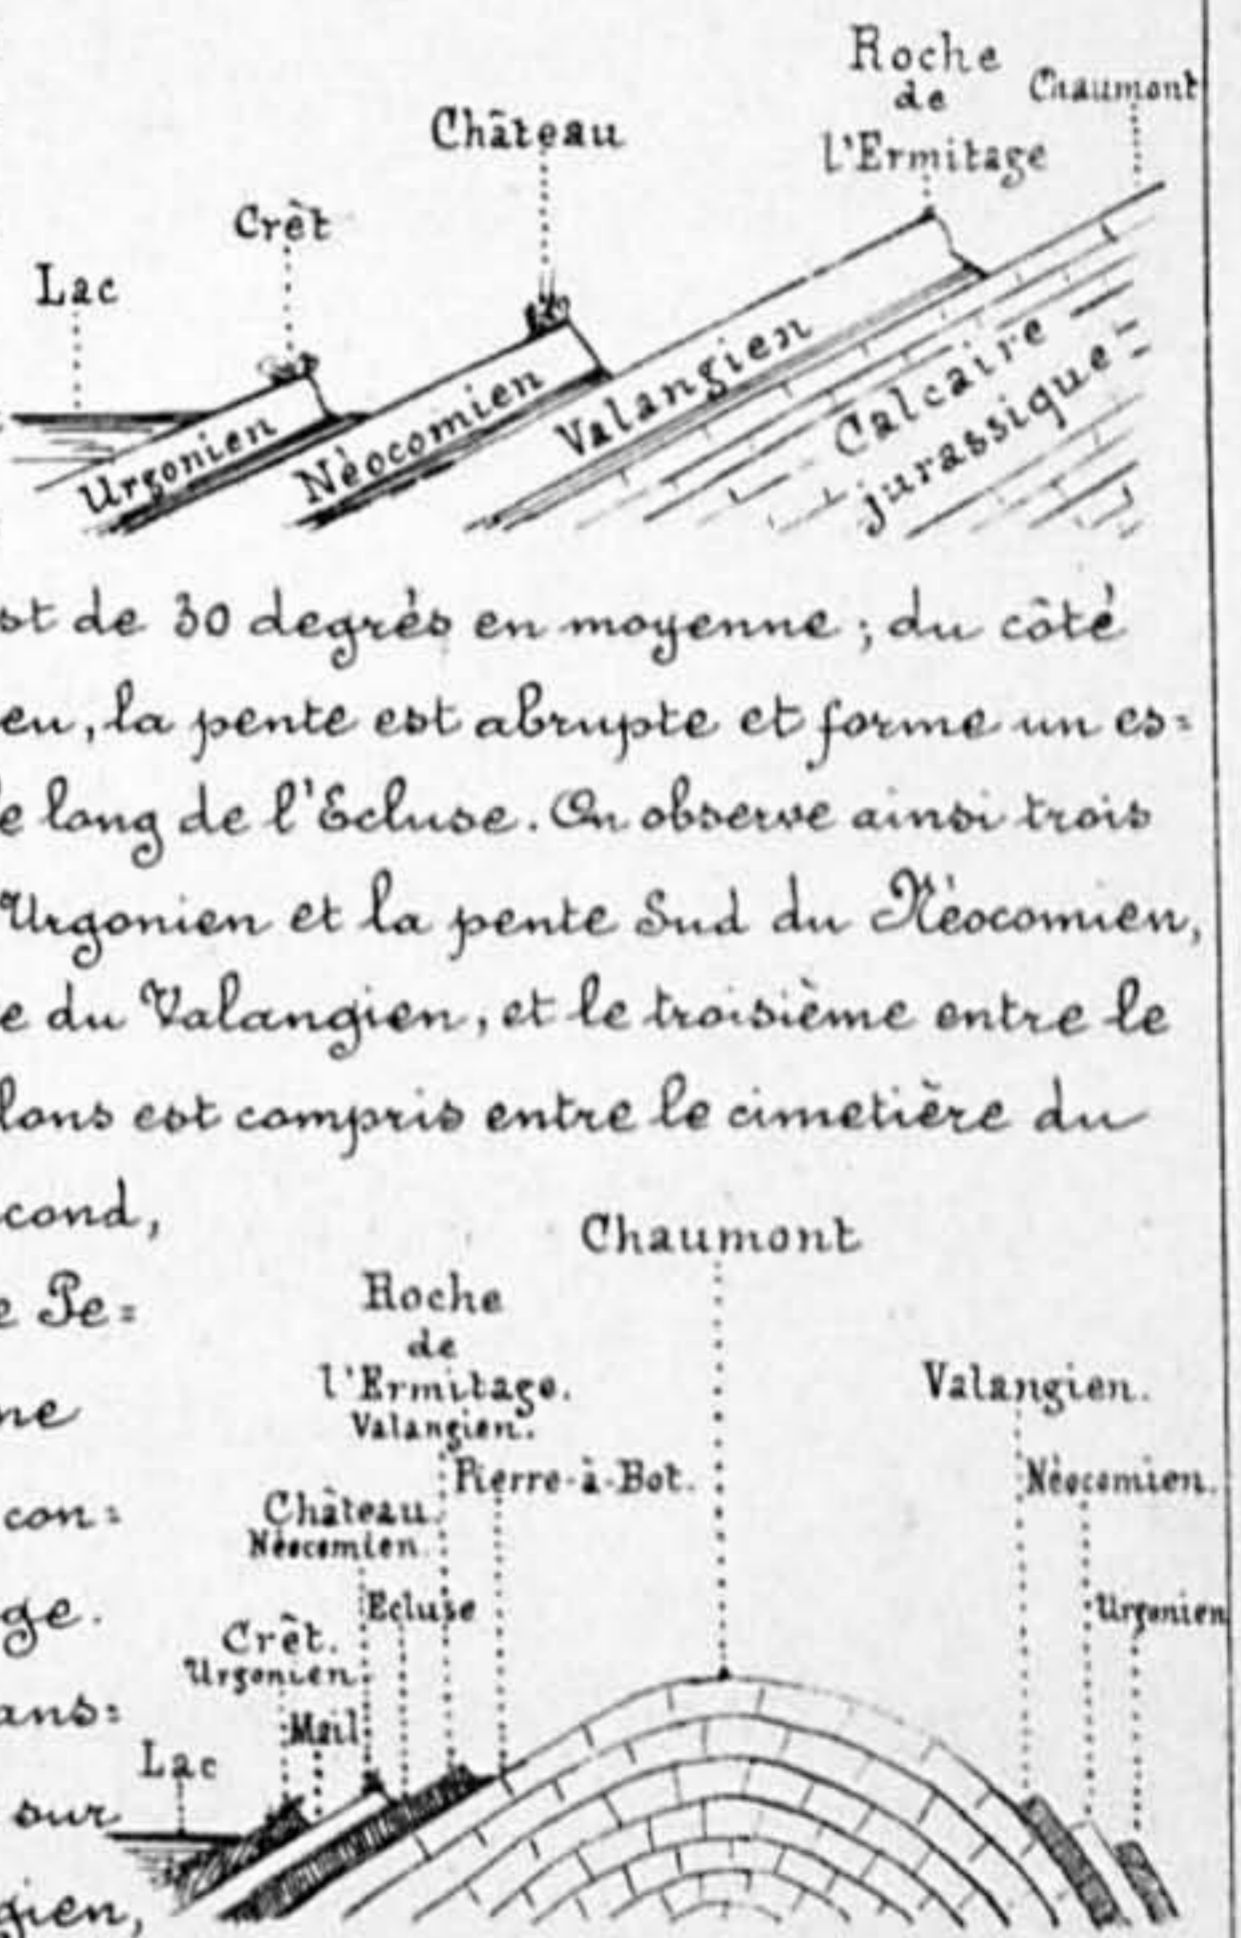 Roche
de
l'Ermitage
Chaumont
Château
Crêt
Lac
Urgonien
Néocomien
Valangien
Calcaire
jurassique
st de 30 degrés en moyenne; du côté
eu, la pente est abrupte et forme un es=
e long de l'Ecluse. On observe ainsi trois
Urgonien et la pente Sud du Néocomien,
e du Valangien, et le troisième entre le
lons est compris entre le cimetière du
cond,
e Pe=
ne
con=
ge.
ans=
sur
gien,
Chaumont
Roche
de
l'Ermitage.
Valangien.
Pierre-à-Bot.
Château.
Néocomien.
Ecluse
Crêt.
Urgonien.
Mail
Lac
Valangien.
Néocomien.
Urgonien